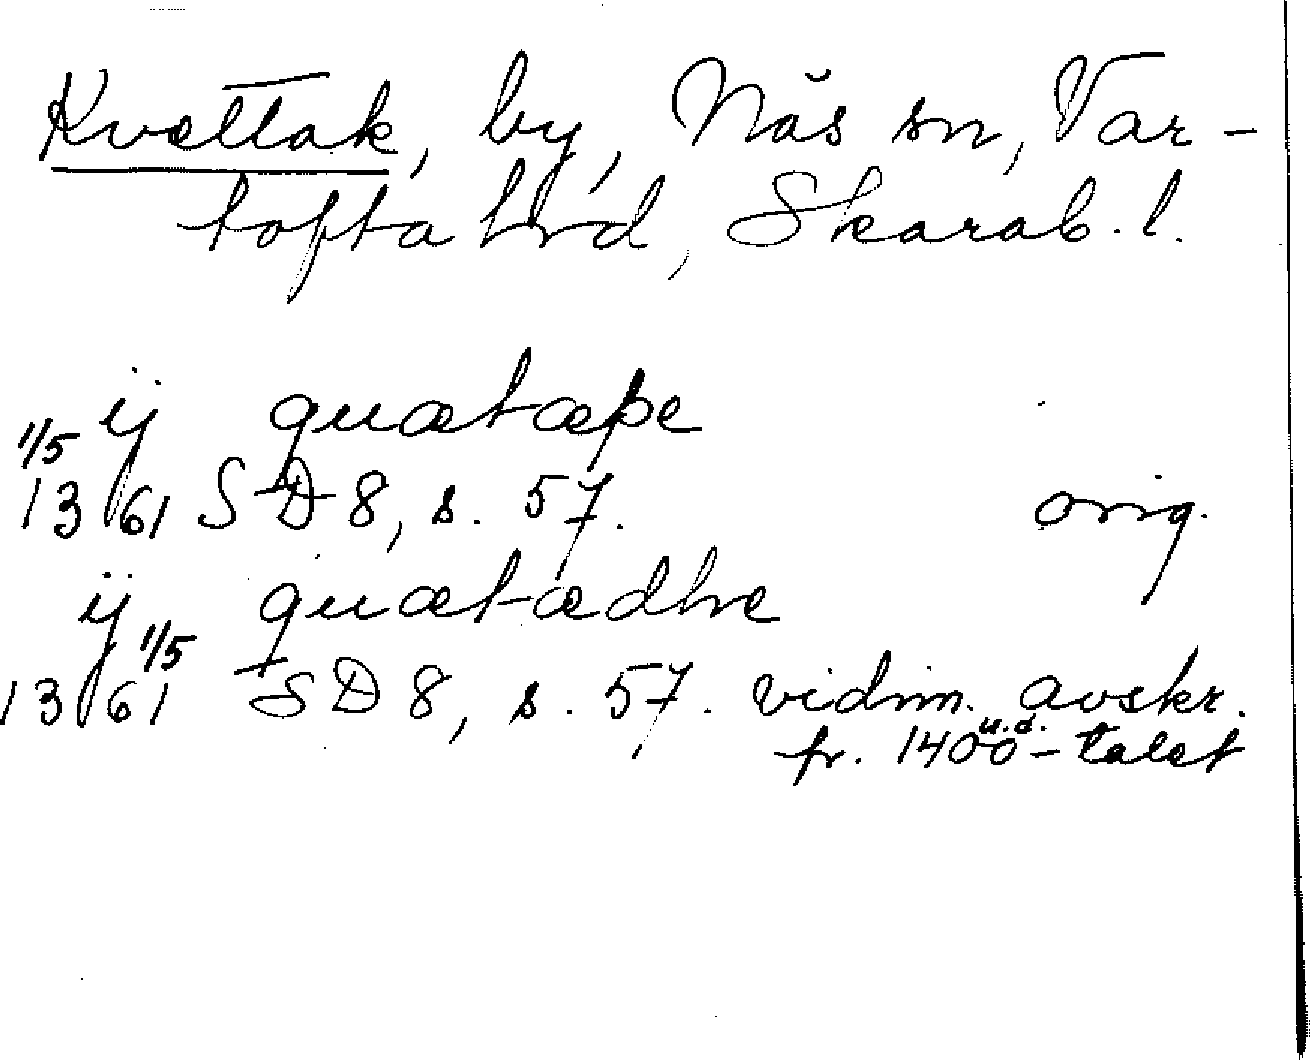 Kvættak, by, Näs sn, Var-
tofta hrd, Skarab. l.
ij quætæþe
1/5
1361 SD 8, s. 57. orig.
ij quætædhe
1/5
1361 SD 8, s. 57. vidim. avskr.
u.d.
fr. 1400-talet